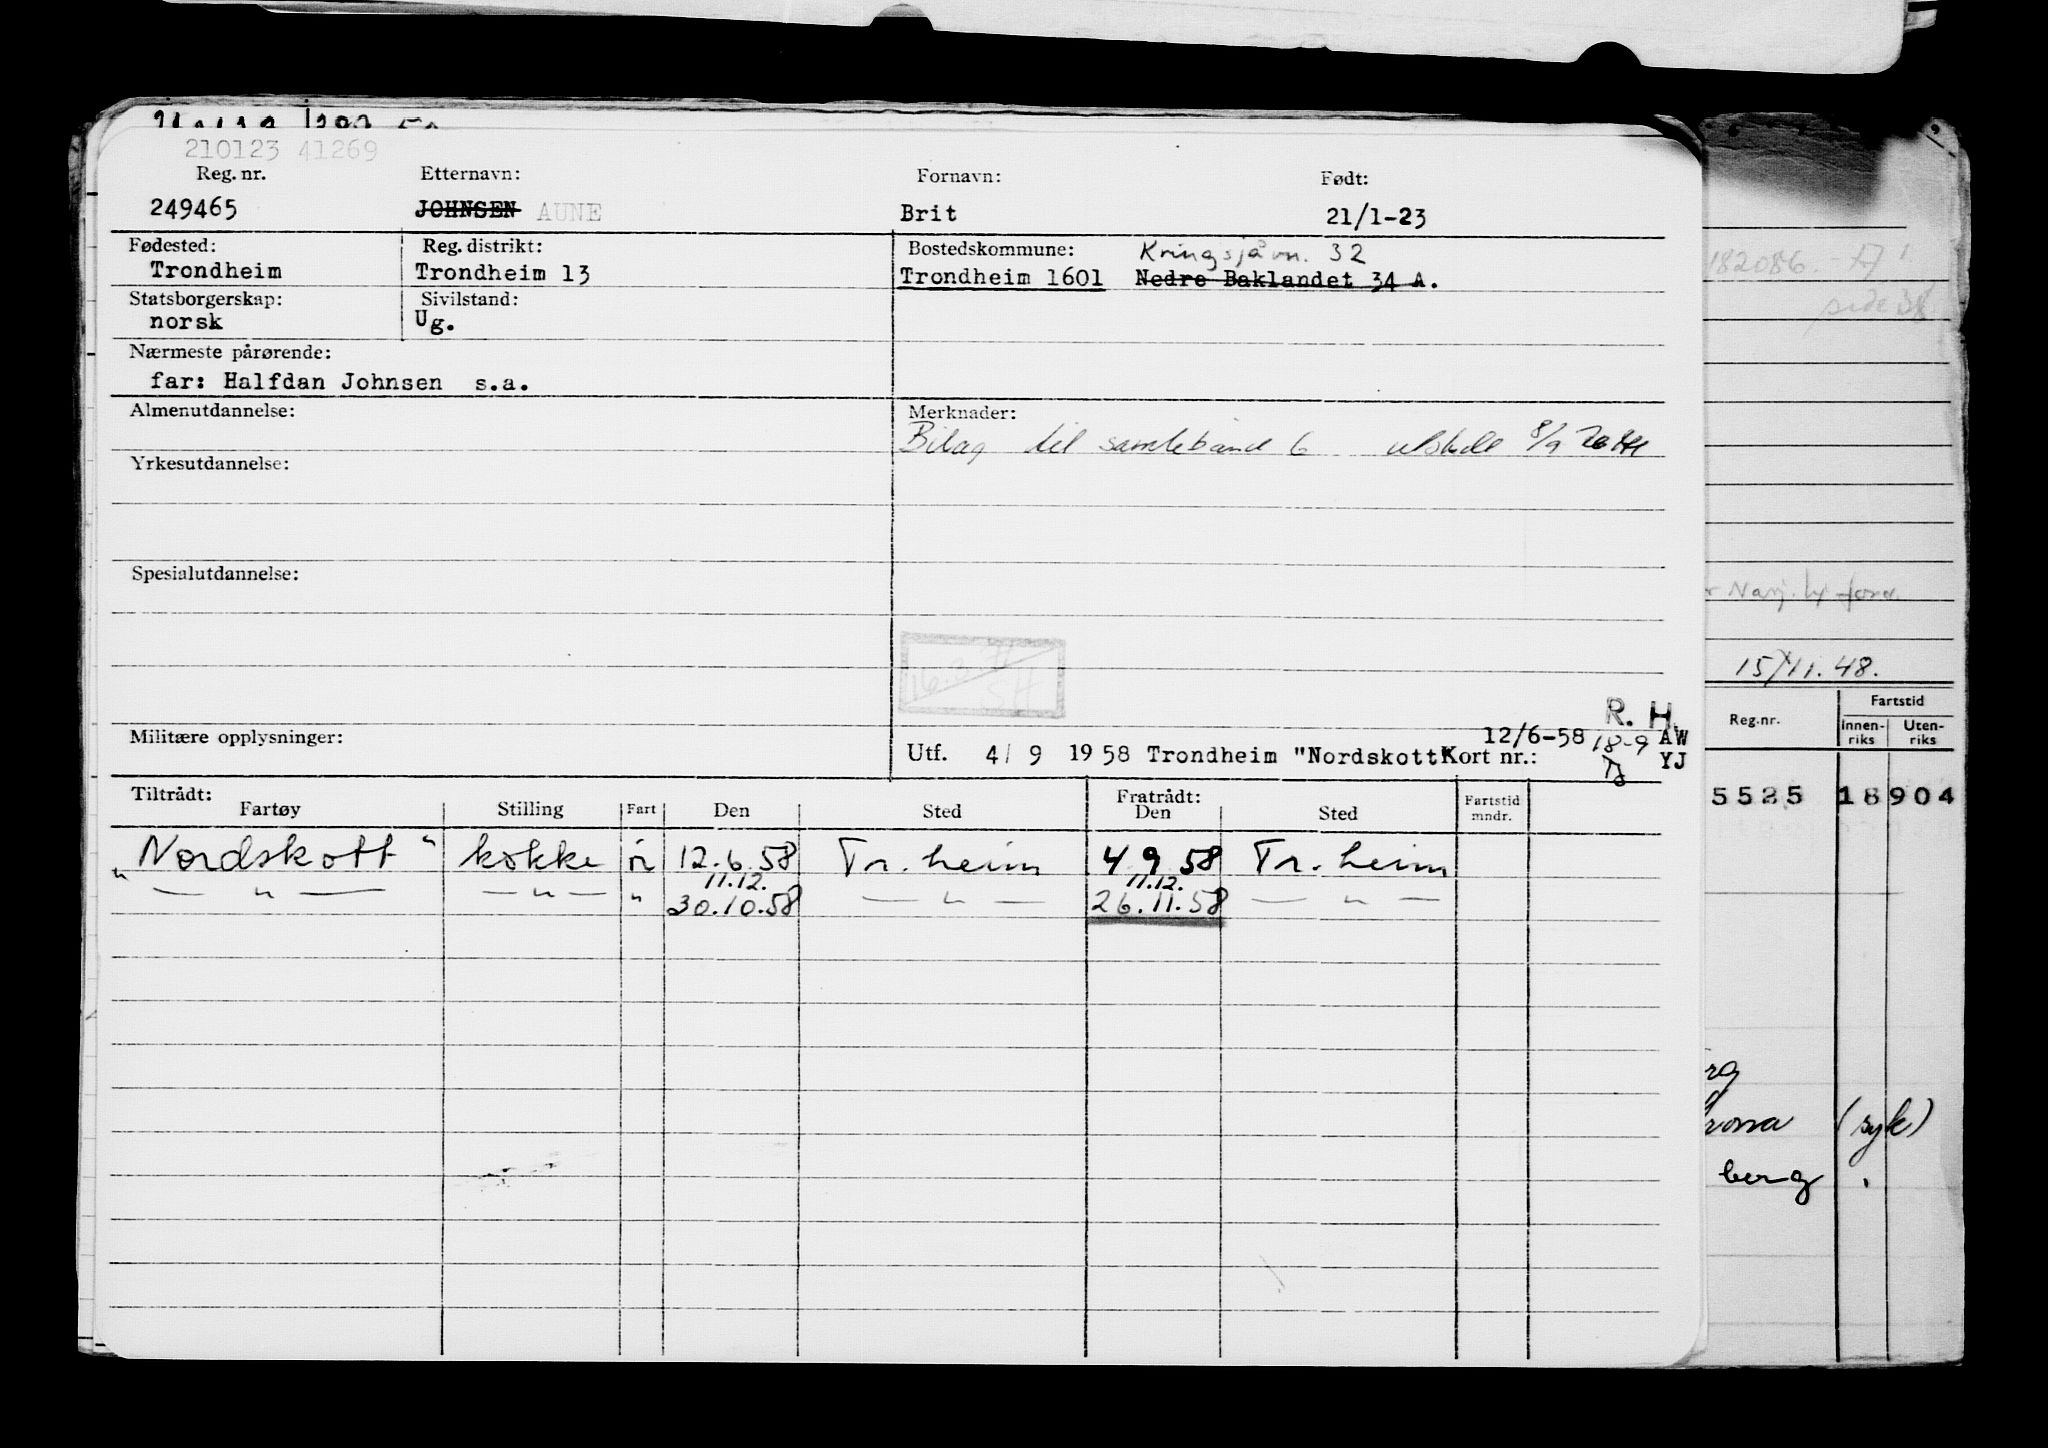 210123 41269
Reg. nr. Etternavn: Fornavn: Født:
249465 JOHNSEN AUNE Brit 21/1-23
Fødested: Reg. distrikt: Bostedskommune: Kringsjåvn. 32
Trondheim Trondheim 13 Trondheim 1601 Nedre Baklandet 34 A.
Statsborgerskap: Sivilstand:
norsk Ug.
Nærmeste pårørende:
far: Halfdan Johnsen s.a.
Almenutdannelse: Merknader:
Bilag til samlebånd 6 utstedt 8/9
Yrkesutdannelse:
Spesialutdannelse:
SH
R. H.
Militære opplysninger: 12/6-58 18-9 AW
Utf. 4/ 9 1958 Trondheim "Nordskott" Kort nr.: YJ
Tiltrådt: Fratrådt:
Fartøy Stilling Fart Den Sted Den Sted Fartstid mndr.
"Nordskott" kokke ir 12.6.58 Tr.heim 4.9.58 Tr.heim
11.12. 11.12.
" — " — — " — " 30.10.58 — " — 26.11.58 — " —
182086.
side
15/11.48.
Reg.nr. Fartstid
Innen-riks Uten-riks
5525 18904
rg
(syk)
berg